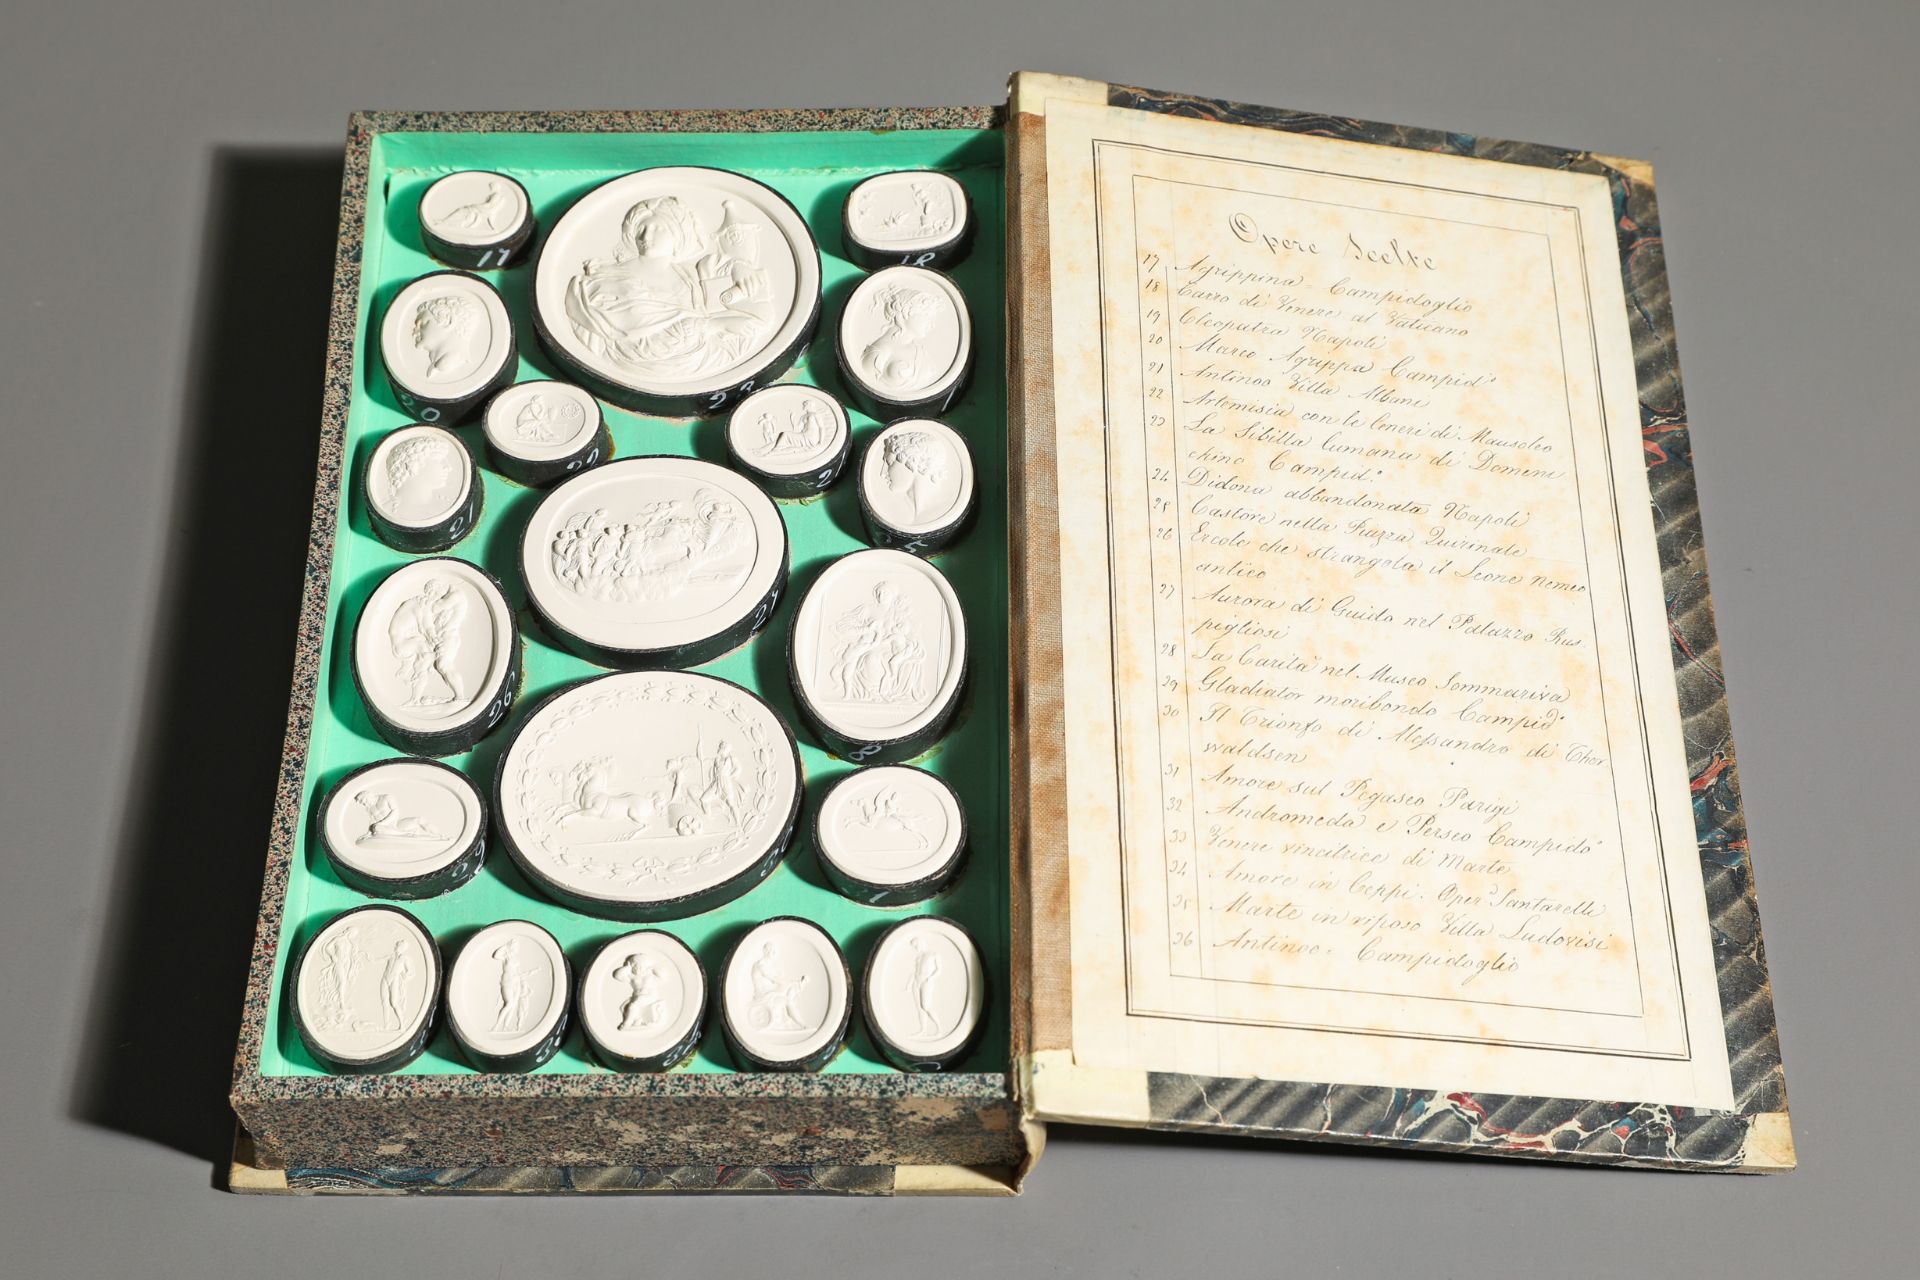 17
18
20
22
21
21
23
24
26
29
30
Opere Scelte
17 Agrippina = Campidoglio
18 Carro di Venere al Vaticano
19 Cleopatra Napoli
20 Marco Agrippa Campid.o
21 Antinoo Villa Albani
22 Artemisia con le Ceneri di Mausoleo
23 La Sibilla Cumana di Domeni
chino Campid.o
24 Didona abbandonata Napoli
25 Castore nella Piazza Quirinale
26 Ercole che strangola il Leone nemeo
antico
27 Aurora di Guido nel Palazzo Rus-
pigliosi
28 La Carità nel Museo Sommariva
29 Gladiator moribondo Campid.o
30 Il Trionfo di Alessandro di Thor
waldsen
31 Amore sul Pegaseo Parigi
32 Andromeda e Perseo Campido.o
33 Venere vincitrice di Marte
34 Amore in Ceppi. Oper.a Santarelli
35 Marte in riposo Villa Ludovisi
36 Antinoo = Campidoglio